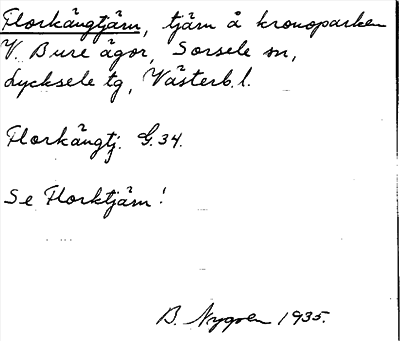 Florkångtjärn, tjärn å kronoparken
V. Bure ägor, Sorsele sn,
Lycksele tg, Västerb. l.
Florkångtj. G. 34.
Se Florktjärn!
B. Nygren 1935.